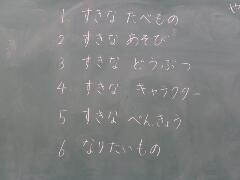 1 すきな たべもの
2 すきな あそび
3 すきな どうぶつ
4 すきな キャラクター
5 すきな べんきょう
6 なりたいもの
や